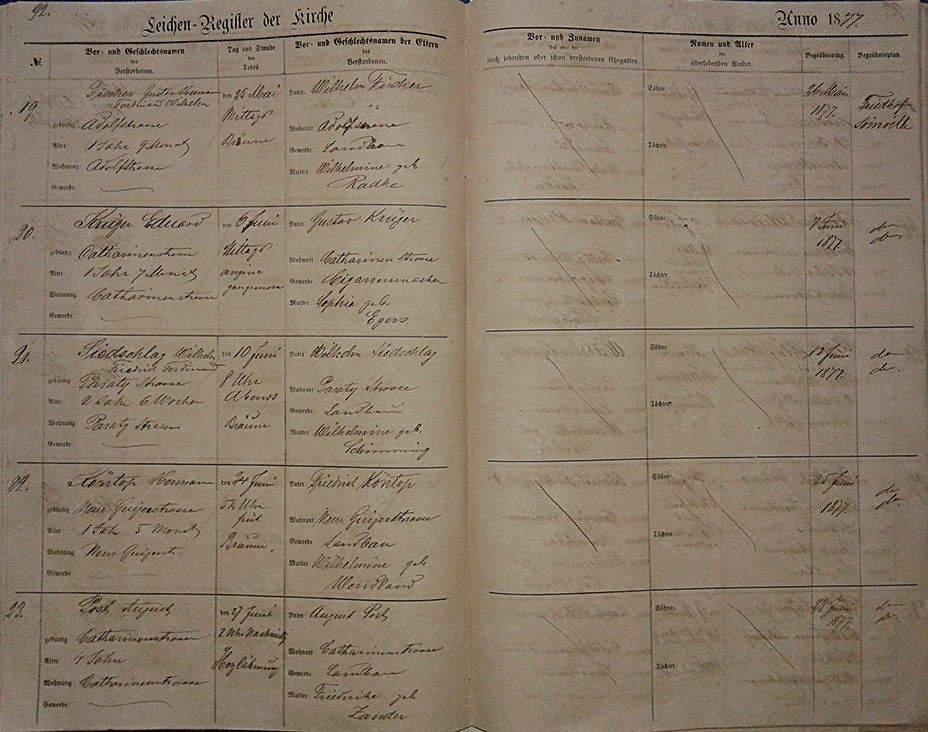 92.
Leichen-Register der Kirche
Anno 1877
№.
Vor- und Geschlechtsnamen
des
Verstorbenen.
Tag und Stunde
des
Todes
Vor- und Geschlechtsnamen der Eltern
des
Verstorbenen.
Vor- und Zunamen
des oder der
noch lebenden oder schon verstorbenen Ehegatten.
Namen und Alter
der
überlebenden Kinder.
Begräbnißtag.
Begräbnißplatz.
19.
Fischer Gustav Hermann
Ferdinand Wilhelm
gebürtig Adolfstrasse
Alter 1 Jahr 9 Monat
Wohnung Adolfstrasse
Gewerbe:
den 25 Mai
Mittags
Bräune
Vater: Wilhelm Fischer
Wohnort Adolfstrasse
Gewerbe: Landbau
Mutter Wilhelmine geb
Radke
Söhne:
Töchter
26 Mai
1877.
Friedhof
Joinville
20.
Krüger Eduard
gebürtig Catharinenstrasse
Alter 1 Jahr 7 Monat
Wohnung Catharinenstrasse
Gewerbe:
den 6 Juni
Mittags
angina
gangrenosa
Vater: Gustav Krüger
Wohnort Catharinenstrasse
Gewerbe: Cigarrenmacher
Mutter: Sophia geb.
Egers.
Söhne:
Töchter:
7 Juni
1877.
do
do
21.
Siedschlag Wilhelm
Friedrich Ferdinand
gebürtig Paraty Strasse
Alter 2 Jahr 6 Wochen
Wohnung Paraty Strasse
Gewerbe:
den 10 Juni
8 Uhr
Abends
Bräune
Vater: Wilhelm Siedschlag
Wohnort Paraty Strasse
Gewerbe: Landbau
Mutter Wilhelmine geb.
Schimming
Söhne:
Töchter:
12 Juni
1877.
do
do.
22.
Köntop Hermann
gebürtig Neue Guigerstrasse
Alter 1 Jahr 5 Monat
Wohnung Neue Guigerstr.
Gewerbe:
den 24 Juni
5½ Uhr
früh
Bräune.
Vater: Friedrich Köntop
Wohnort Neue Guigerstrasse
Gewerbe: Landbau
Mutter Wilhelmine geb
Wendland
Söhne:
Töchter:
25 Juni
1877.
do
do.
23.
Post August
gebürtig Catharinenstrasse
Alter 4 Jahre
Wohnung: Catharinenstrasse
Gewerbe:
den 27 Juni
2 Uhr Nachmittg
Herzlähmung
Vater: August Post
Wohnort Catharinenstrasse
Gewerbe: Landbau
Mutter: Friederike geb
Zander
Söhne:
Töchter
28 Juni
1877.
do
do.